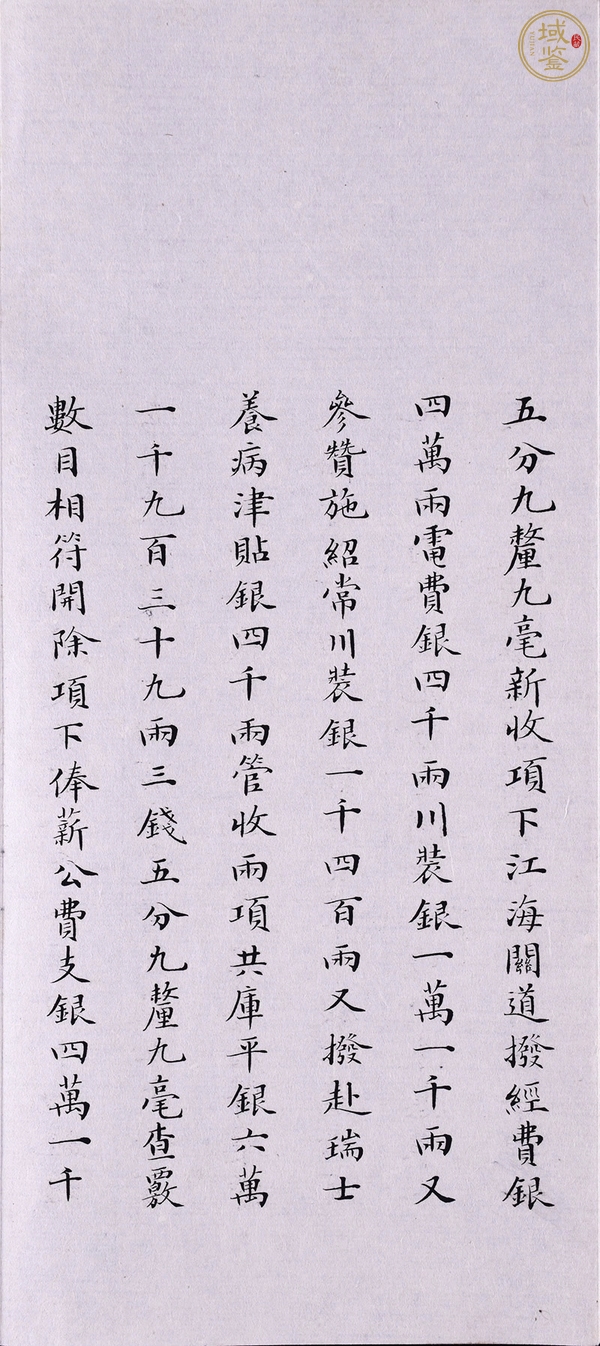 五分九釐九毫新收項下江海關道撥經費銀
四萬兩電費銀四千兩川裝銀一萬一千兩又
參贊施紹常川裝銀一千四百兩又撥赴瑞士
養病津貼銀四千兩管收兩項共庫平銀六萬
一千九百三十九兩三錢五分九釐九毫查覈
數目相符開除項下俸薪公費支銀四萬一千
域鉴